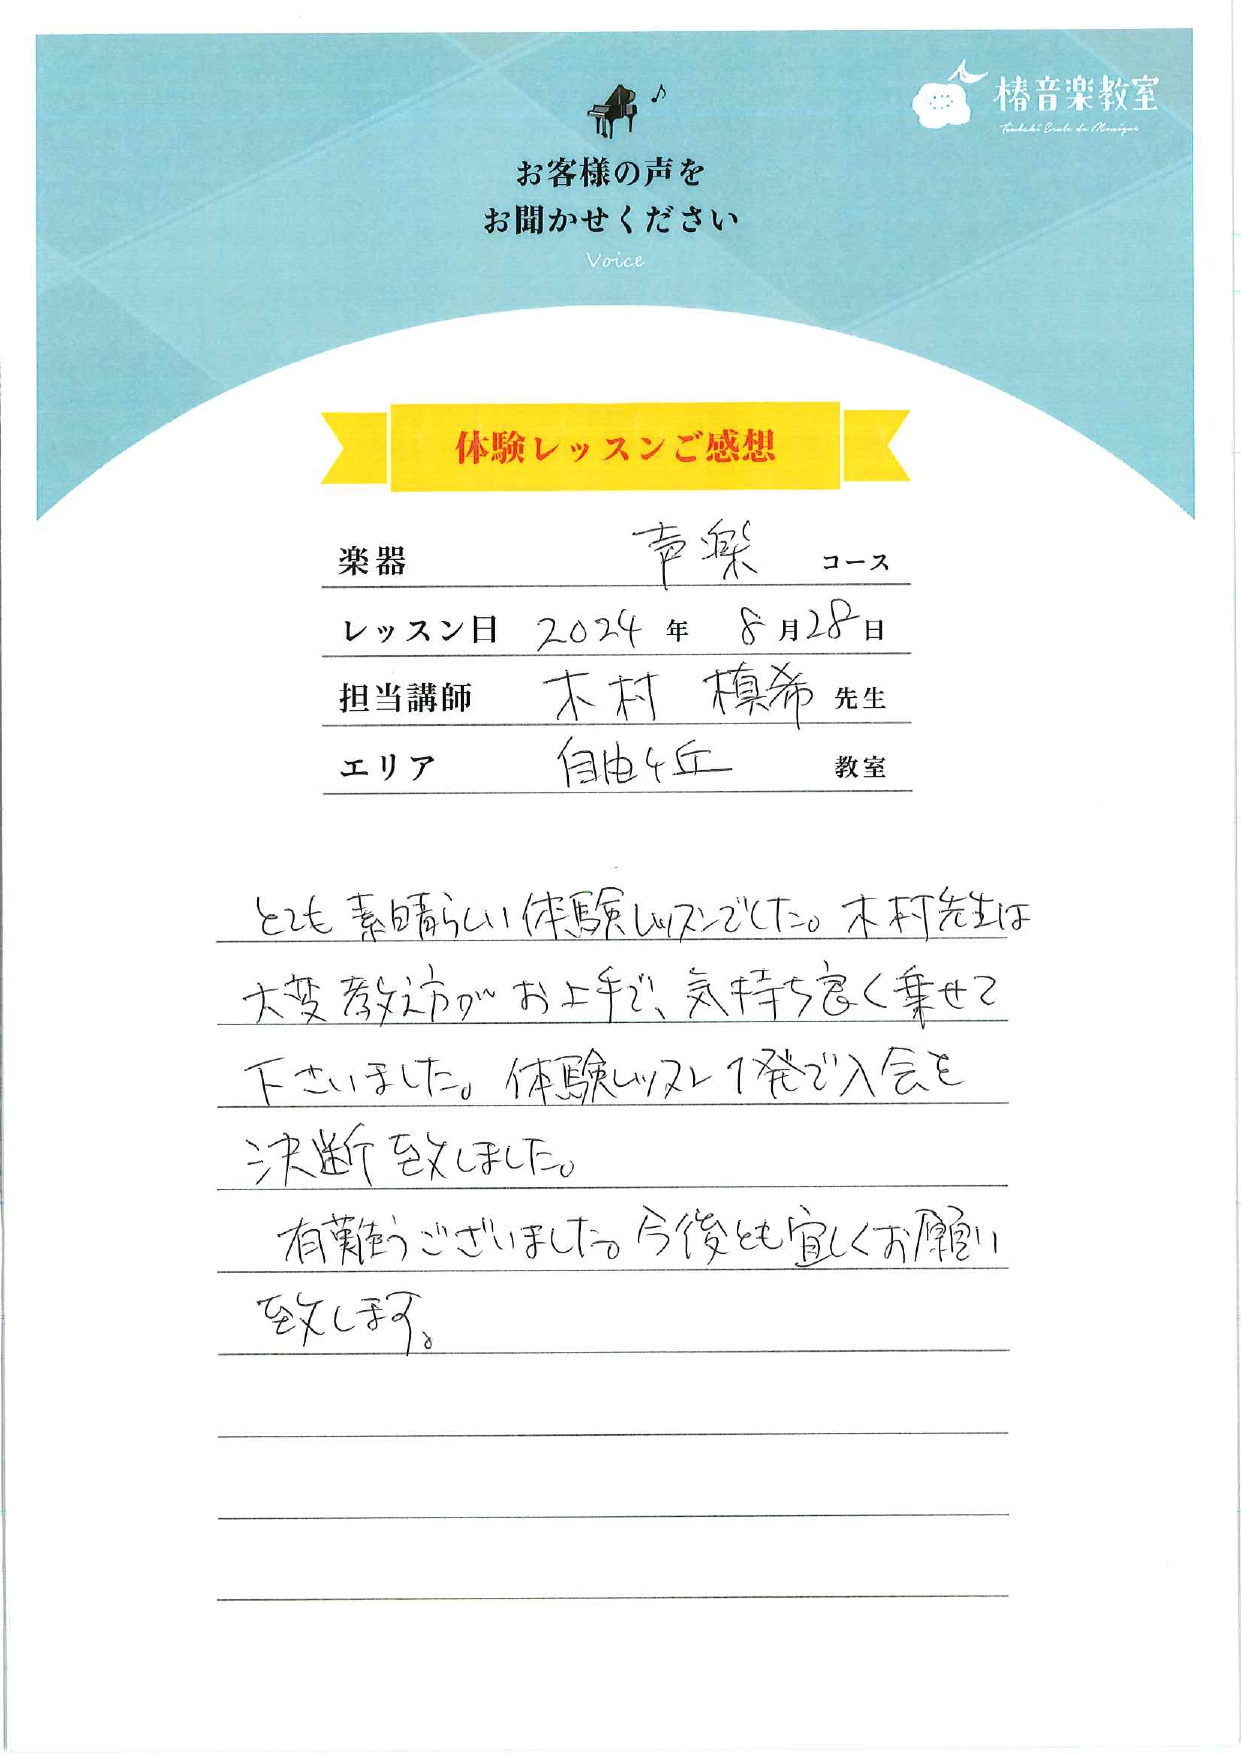 椿音楽教室
Tsubaki École de Musique
お客様の声を
お聞かせください
Voice
体験レッスンご感想
楽器 声楽 コース
レッスン日 2024 年 8 月 28 日
担当講師 木村 槙希 先生
エリア 自由ヶ丘 教室
とても素晴らしい体験レッスンでした。木村先生は
大変教え方がお上手で、気持ち良く乗せて
下さいました。体験レッスン1発で入会を
決断致しました。
有難うございました。今後とも宜しくお願い
致します。